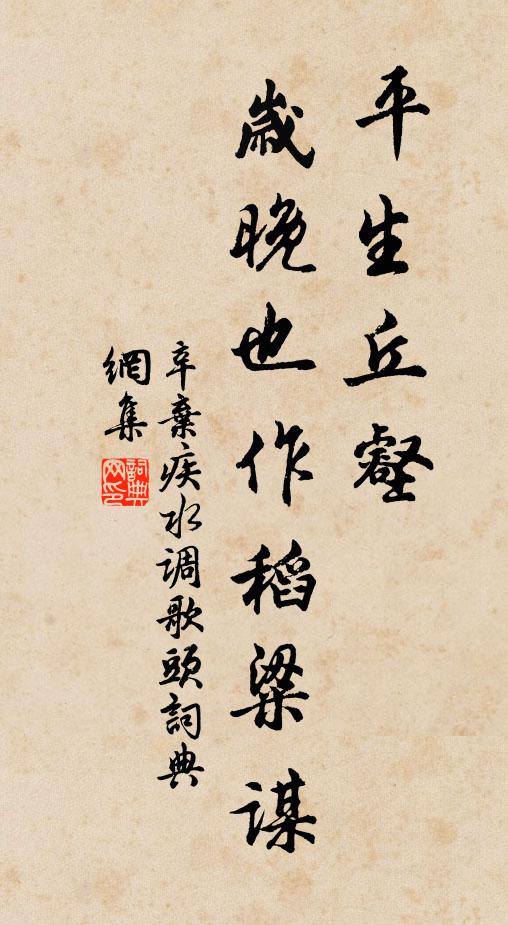 平生丘壑
歲晚也作稻粱謀
辛棄疾水调歌頭詞典
網集
詞典網印